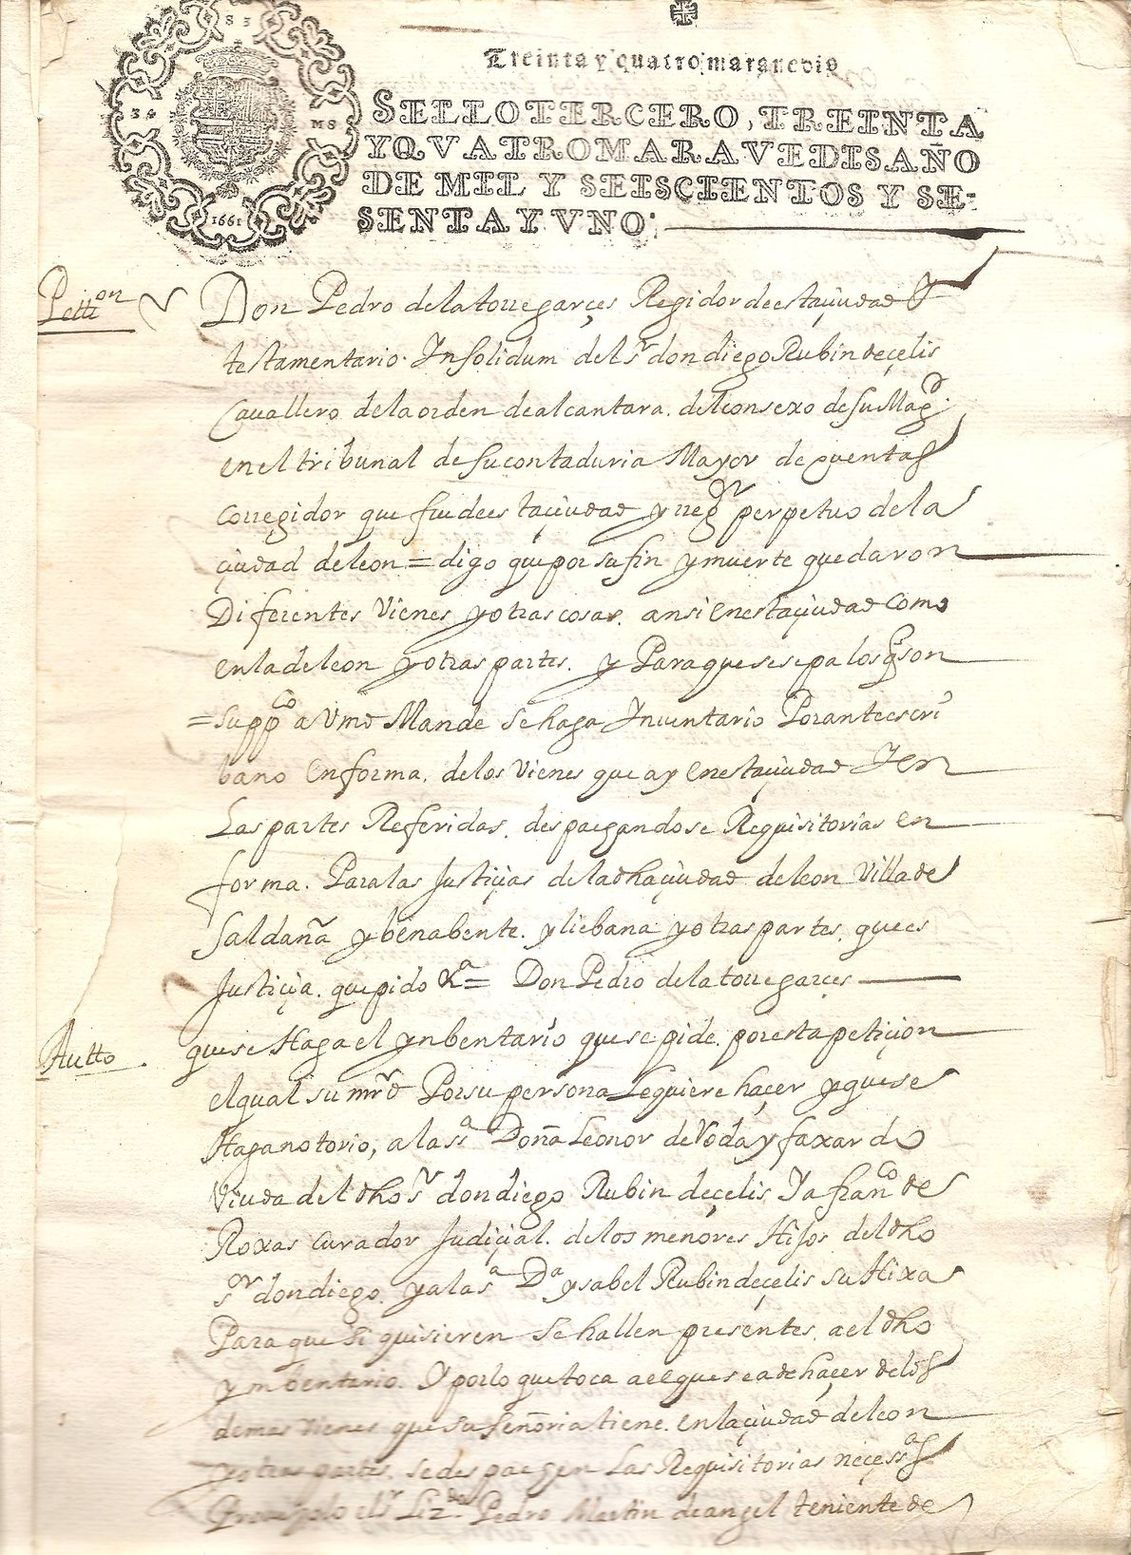 Treinta y quatro maravedis
SELLO TERCERO, TREINTA
Y QVATRO MARAVEDIS, AÑO
DE MIL Y SEISCIENTOS Y SE-
SENTA Y VNO.
34 MS
1661
Petiçion
Don Pedro de la torre garçes Regidor de esta çiudad
testamentario Ynsolidum del sr don diego Rubin de çelis
Cauallero de la orden de alcantara. del consexo de su Magd
en el tribunal de su contaduria Mayor de quentas
Corregidor que fue de esta çiudad y rregor perpetuo de la
çiudad de leon = digo que por su fin y muerte quedaron
Diferentes Vienes y otras cosas. ansi en esta çiudad como
en la de leon y otras partes. y Para que se sepa los q son
= suppco a Vmd Mande se haga Ynuentario Por ante escri
bano en forma. de los Vienes que ay en esta çiudad Y en
Las partes Referidas. despaegandose Requisitorias en
forma. Para las Justiçias de la dha çiudad de leon Villa de
Saldaña y benabente. y liebana y otras partes. que es
Justiçia. que pido &a = Don Pedro de la torre garçes
Autto
que se Haga el ynbentario que se pide. por esta petiçion
el qual su mrd Por su persona Le quiere haçer y que se
Haga notorio, a la sa Doña Leonor de Voda y faxardo
Viuda del dho sr don diego Rubin de çelis Y a franco de
Roxas Curador Judiçial. de los menores Hijos del dho
sor don diego. y a la sa Da ysabel Rubin de çelis su Hixa
Para que si quisieren se hallen presentes. a el dho
ynbentario. Y por lo que toca a el que se a de haçer de los
demas vienes que su señoria tiene. en la çiudad de leon
y otras partes. se despaegen Las Requisitorias neçessas
Proveyolo el sr Lizdo Pedro Martin de angel teniente de